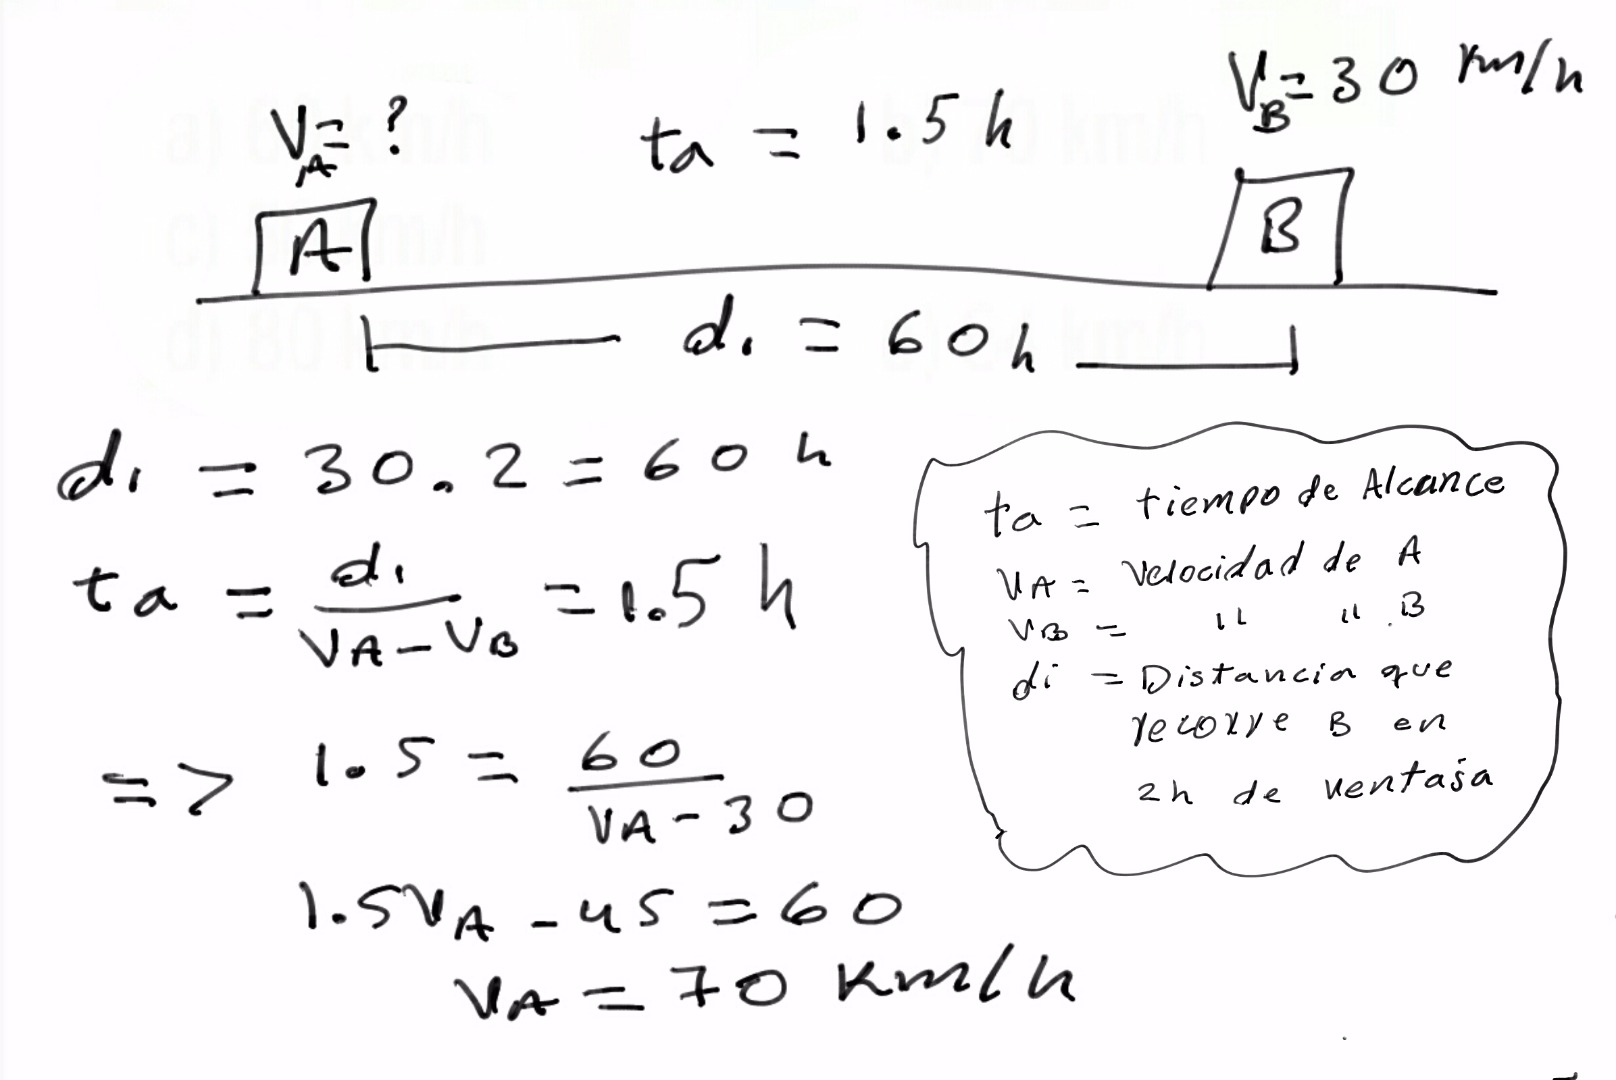 V_A = ?
ta = 1.5 h
V_B = 30 km/h
A
B
d₁ = 60 h
d₁ = 30 . 2 = 60 h
ta = d₁ / (VA - VB) = 1.5 h
=> 1.5 = 60 / (VA - 30)
1.5VA - 45 = 60
VA = 70 Km/h
ta = tiempo de Alcance
VA = Velocidad de A
VB = " " B
di = Distancia que
recorre B en
2h de ventaja